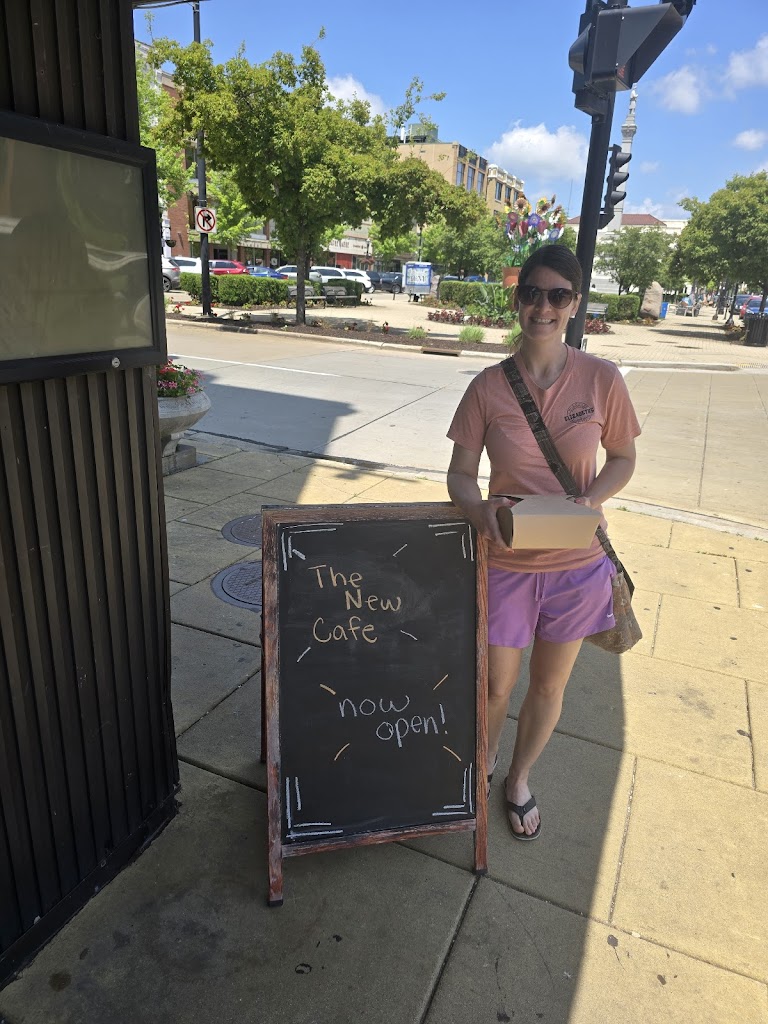 The
New
Cafe
now
open!
ELIZABETH